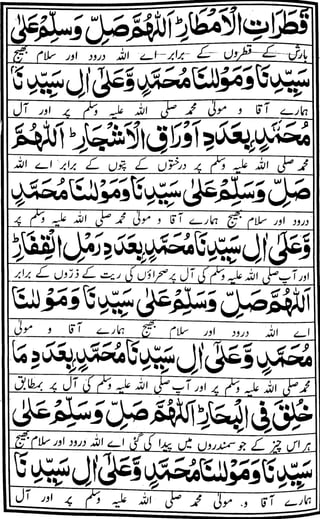 قَطَرَاتِ الْاَمْطَارِ اَللّٰهُمَّ صَلِّ وَسَلِّمْ عَلٰى
بارش کے قطروں کے برابر۔ اے اللہ درود اور سلام بھیج
سَيِّدِنَا وَمَوْلٰىنَا مُحَمَّدٍ وَّعَلٰى اٰلِ سَيِّدِنَا
ہمارے آقا و مولیٰ محمد صلی اللہ علیہ وسلم پر اور آل
مُحَمَّدٍ بِعَدَدِ اَوْرَاقِ الْاَشْجَارِ اَللّٰهُمَّ
محمد صلی اللہ علیہ وسلم پر درختوں کے پتوں کے برابر اے اللہ
صَلِّ وَسَلِّمْ عَلٰى سَيِّدِنَا وَمَوْلٰىنَا مُحَمَّدٍ
درود اور سلام بھیج ہمارے آقا و مولیٰ محمد صلی اللہ علیہ وسلم پر
وَّعَلٰى اٰلِ سَيِّدِنَا مُحَمَّدٍ بِعَدَدِ رَمْلِ الْقِفَارِ
اور آپ صلی اللہ علیہ وسلم کی آل پر صحراؤں کی ریت کے ذرّوں کے برابر
اَللّٰهُمَّ صَلِّ وَسَلِّمْ عَلٰى سَيِّدِنَا وَمَوْلٰىنَا
اے اللہ درود اور سلام بھیج ہمارے آقا و مولیٰ
مُحَمَّدٍ وَّعَلٰى اٰلِ سَيِّدِنَا مُحَمَّدٍ بِعَدَدِ مَا
محمد صلی اللہ علیہ وسلم پر اور آپ صلی اللہ علیہ وسلم کی آل پر بمطابق
خُلِقَ فِى الْبِحَارِ اَللّٰهُمَّ صَلِّ وَسَلِّمْ عَلٰى
ہر اس چیز کے جو سمندروں میں پیدا کی گئی اے اللہ درود اور سلام بھیج
سَيِّدِنَا وَمَوْلٰىنَا مُحَمَّدٍ وَّعَلٰى اٰلِ سَيِّدِنَا
ہمارے آقا و مولیٰ محمد صلی اللہ علیہ وسلم پر اور آل